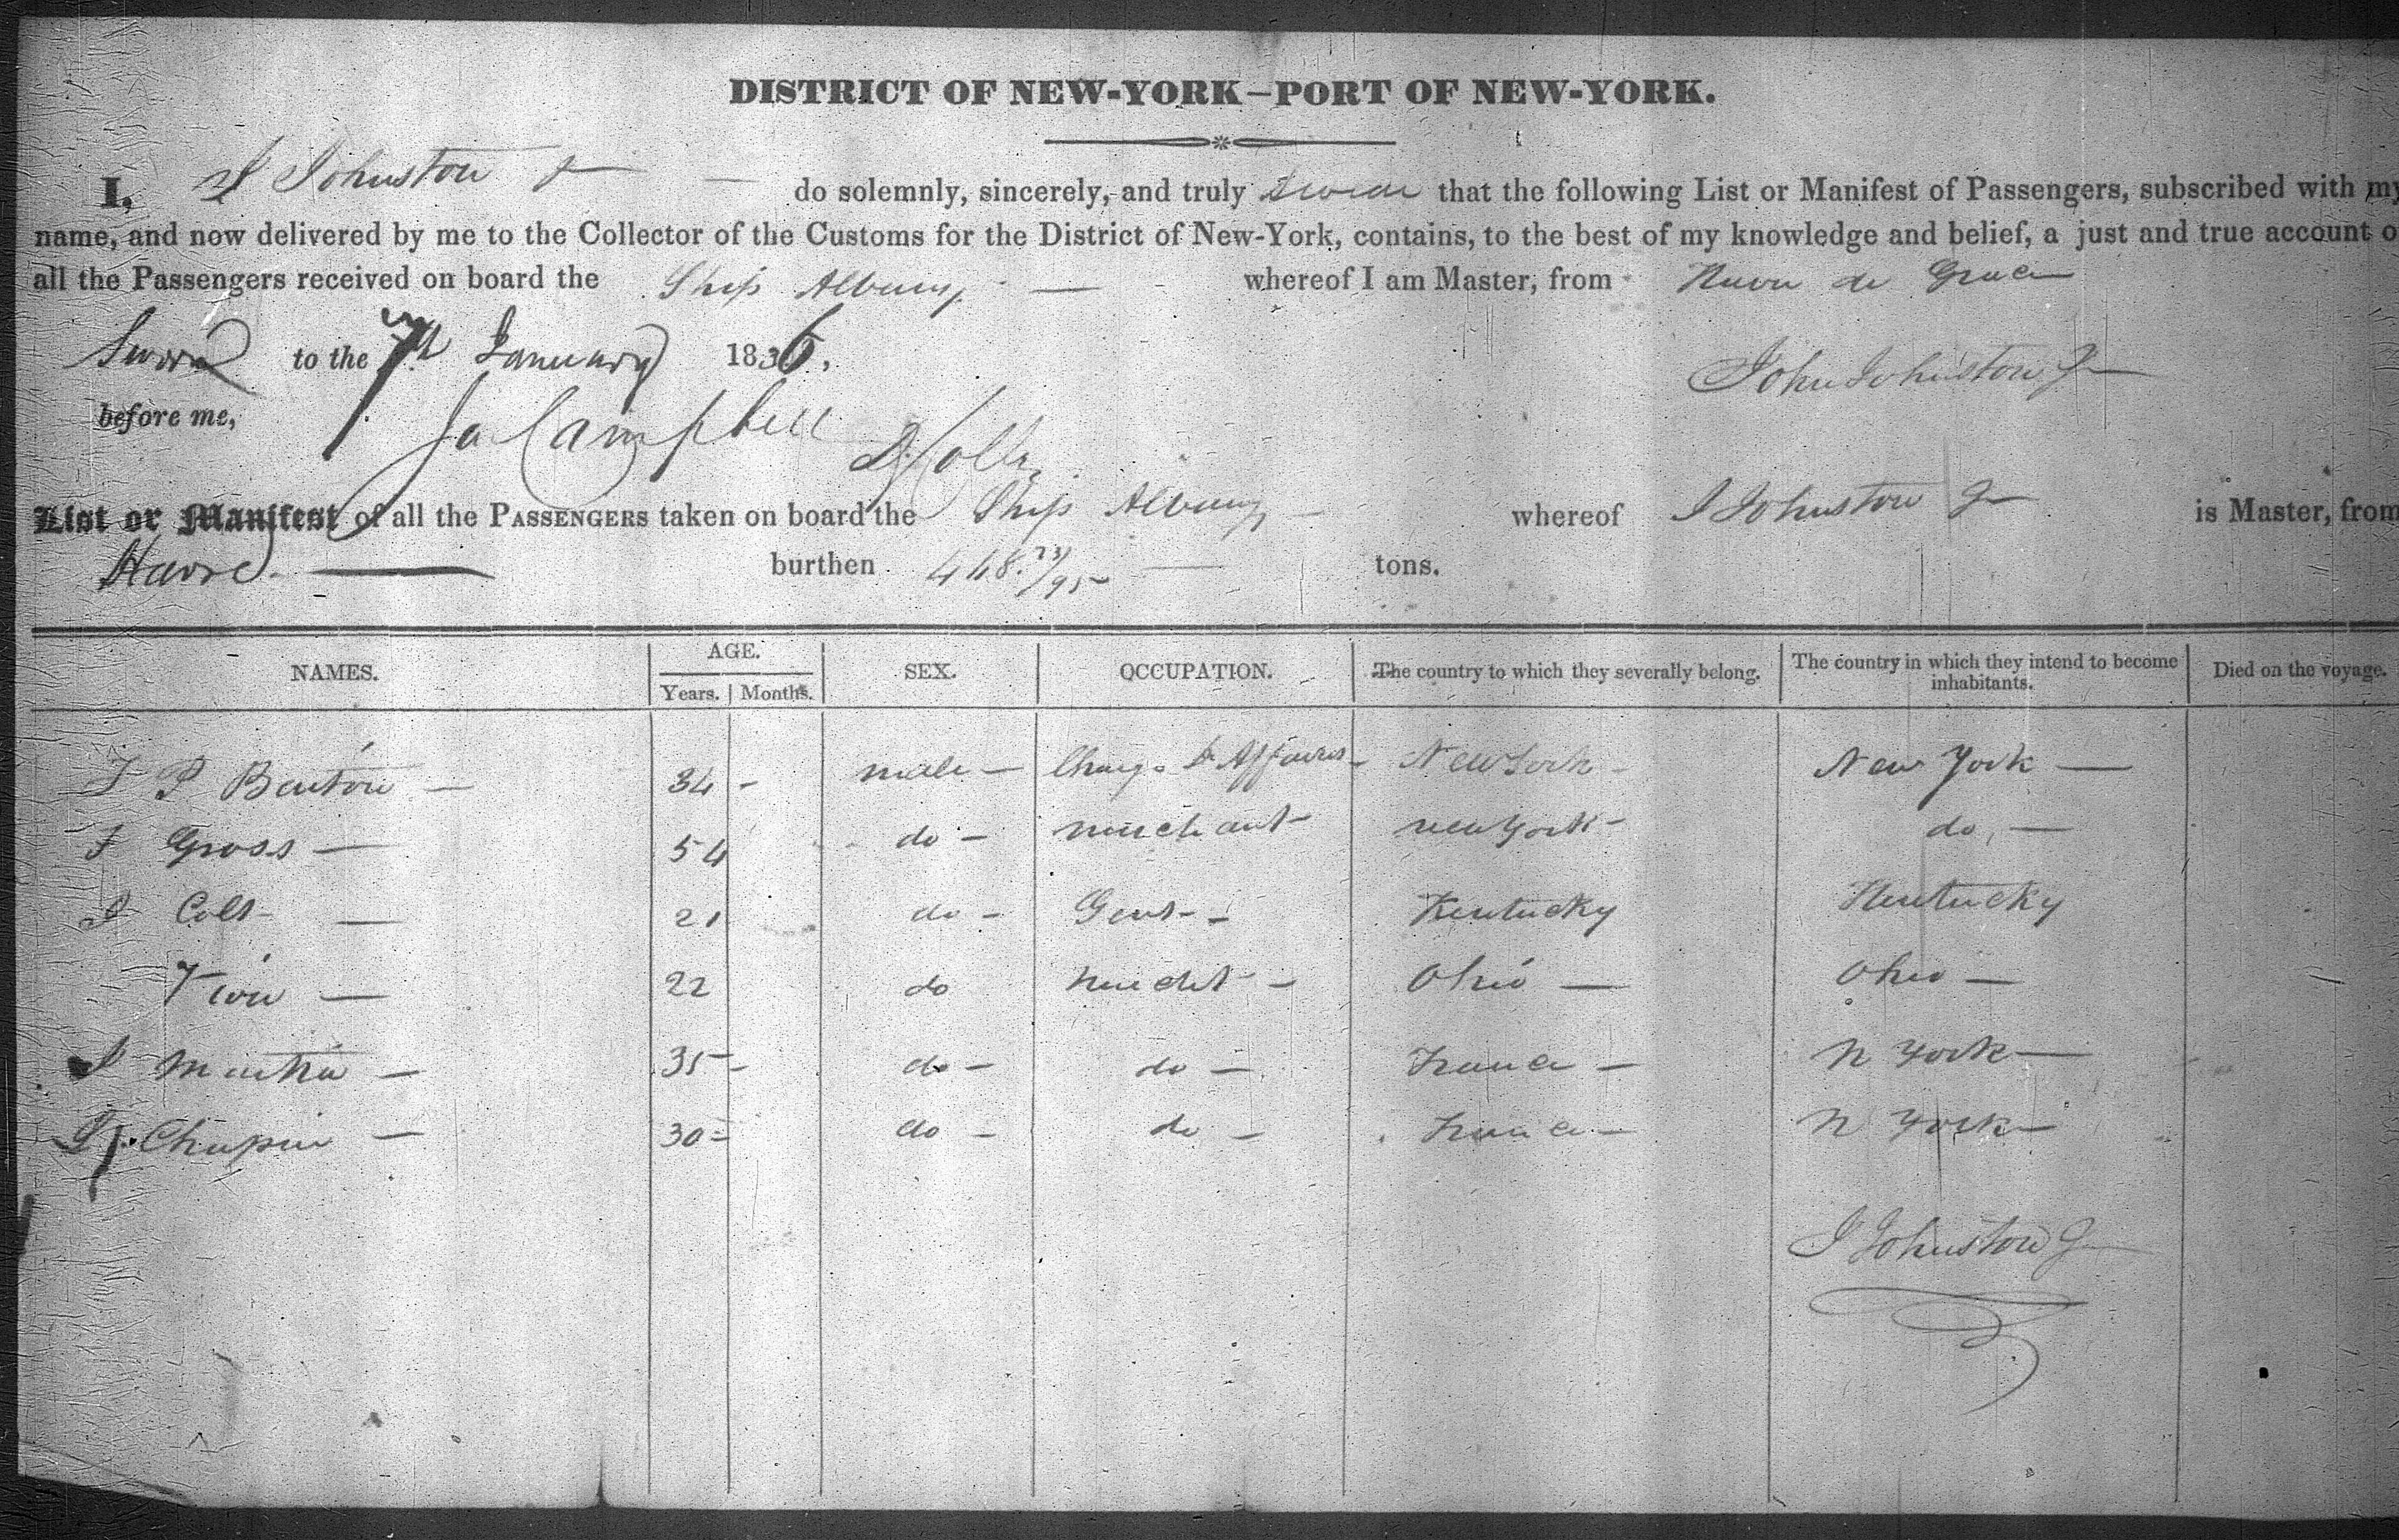 DISTRICT OF NEW-YORK—PORT OF NEW-YORK.
I, J Johnston Jr — do solemnly, sincerely, and truly swear that the following List or Manifest of Passengers, subscribed with my
name, and now delivered by me to the Collector of the Customs for the District of New-York, contains, to the best of my knowledge and belief, a just and true account o
all the Passengers received on board the Ship Albany — whereof I am Master, from Havre de Grace
Sworn to the 7th January 1836,
John Johnston Jr
before me,
Ja Campbell
D Coll
List or Manifest of all the PASSENGERS taken on board the Ship Albany — whereof J Johnston Jr is Master, from
Havre — burthen 468. 73/95 — tons.
NAMES. AGE. SEX. OCCUPATION. The country to which they severally belong. The country in which they intend to become inhabitants. Died on the voyage.
Years. Months.
P — 34 - male — Charge D Affaires — New York - New York —
Gross — 54 do — merchant — New York - do —
Colt — 21 do - Gent - Kentucky Kentucky
22 do Mercht — Ohio — Ohio —
J Martin — 35 - do - do — France — N York —
Chapin — 30 - do - do — France — N York —
J Johnston Jr